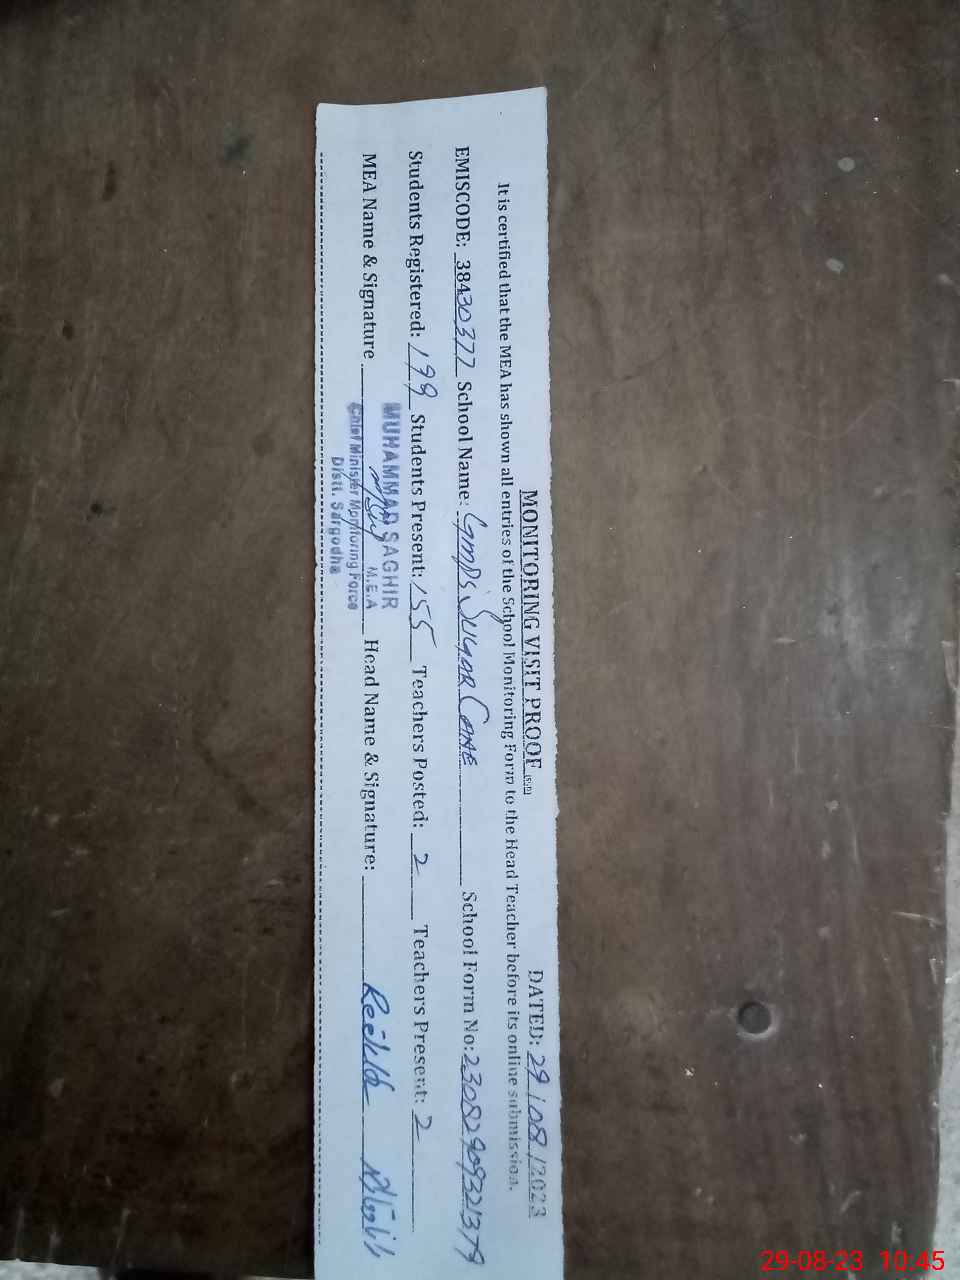 MONITORING VISIT PROOF DATED: 29/08/2023
It is certified that the MEA has shown all entries of the School Monitoring Form to the Head Teacher before its online submission.
EMISCODE: 38430377 School Name: GMPS Sugar Cane School Form No: 23082909321379
Students Registered: 199 Students Present: 155 Teachers Posted: 2 Teachers Present: 2
MEA Name & Signature Head Name & Signature:
MUHAMMAD SAGHIR
M.E.A
Chief Minister Monitoring Force
Distt. Sargodha
29-08-23 10:45